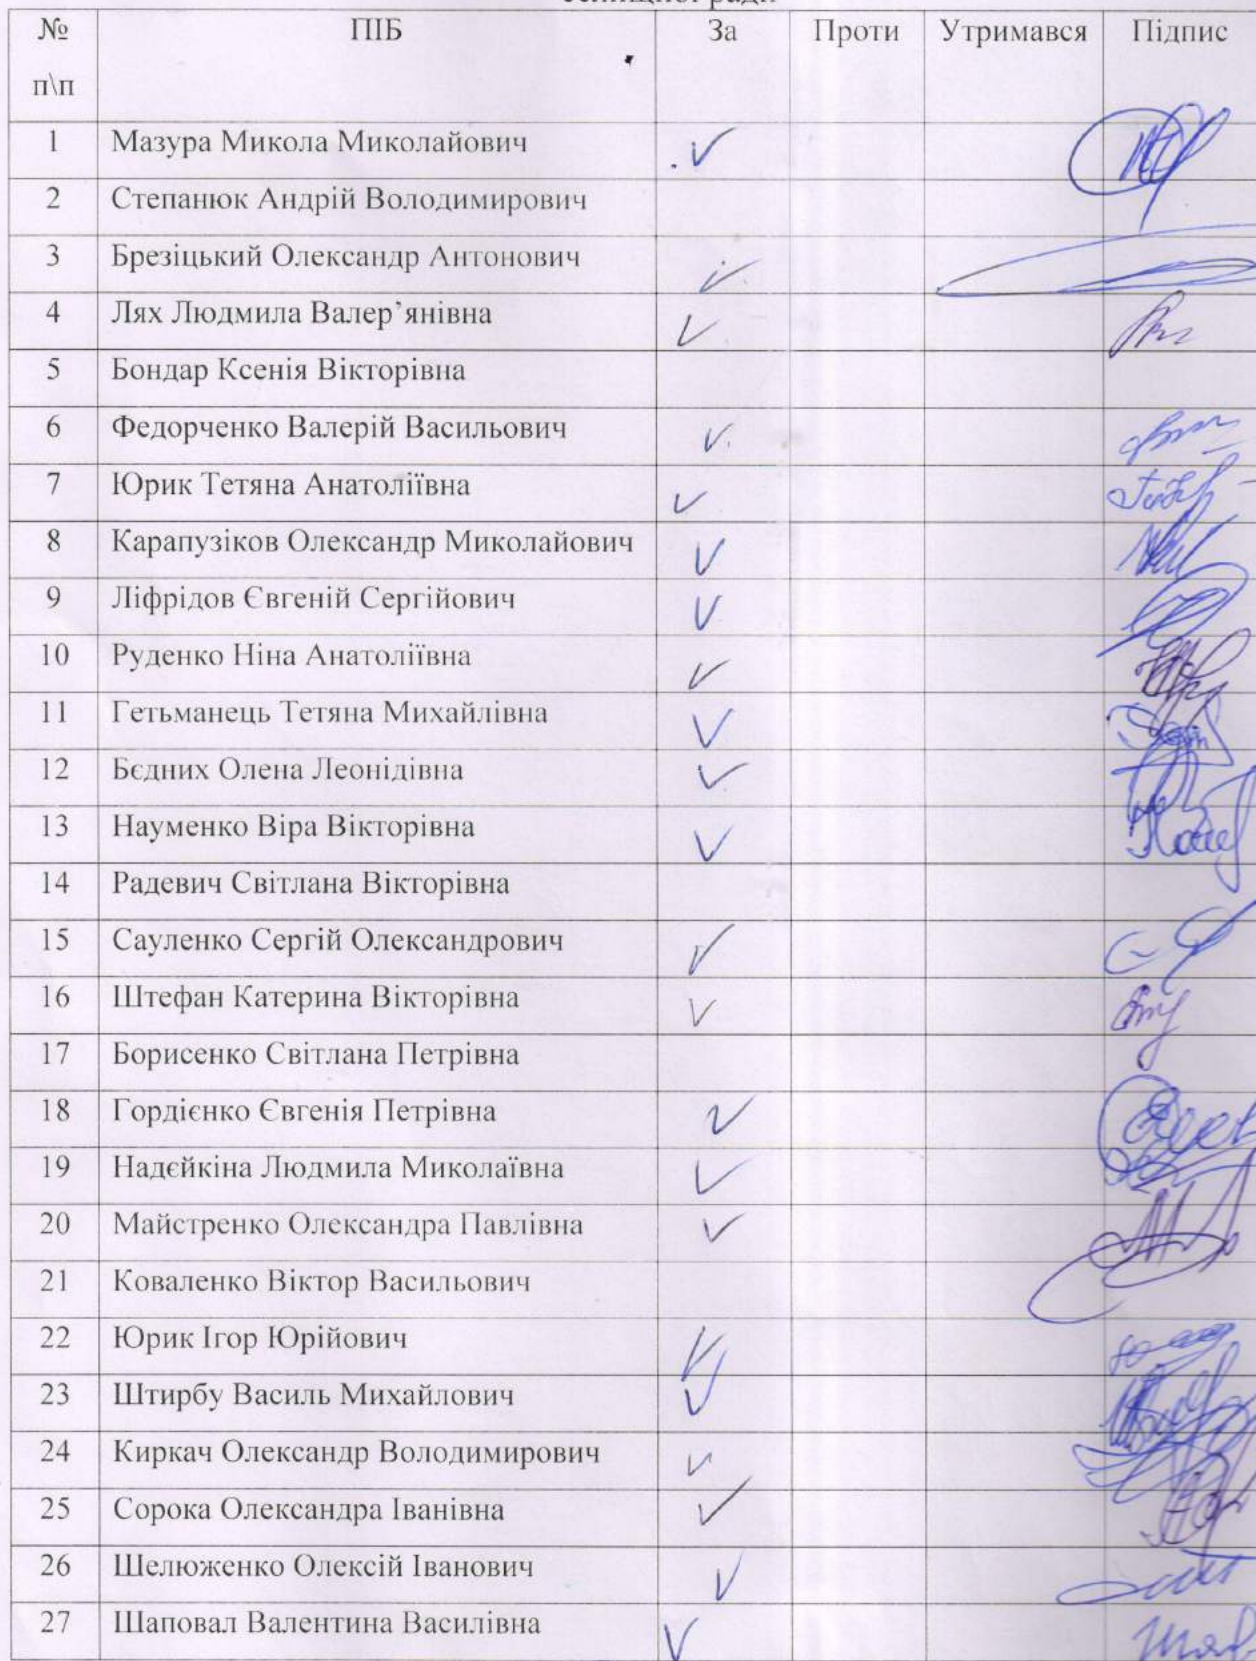 селищної ради
№ ПІБ За Проти Утримався Підпис
п\п
1 Мазура Микола Миколайович V
2 Степанюк Андрій Володимирович
3 Брезіцький Олександр Антонович V
4 Лях Людмила Валер’янівна V
5 Бондар Ксенія Вікторівна
6 Федорченко Валерій Васильович V
7 Юрик Тетяна Анатоліївна V
8 Карапузіков Олександр Миколайович V
9 Ліфрідов Євгеній Сергійович V
10 Руденко Ніна Анатоліївна V
11 Гетьманець Тетяна Михайлівна V
12 Бєдних Олена Леонідівна V
13 Науменко Віра Вікторівна V
14 Радевич Світлана Вікторівна
15 Сауленко Сергій Олександрович V
16 Штефан Катерина Вікторівна V
17 Борисенко Світлана Петрівна
18 Гордієнко Євгенія Петрівна V
19 Надєйкіна Людмила Миколаївна V
20 Майстренко Олександра Павлівна V
21 Коваленко Віктор Васильович
22 Юрик Ігор Юрійович V
23 Штирбу Василь Михайлович V
24 Киркач Олександр Володимирович V
25 Сорока Олександра Іванівна V
26 Шелюженко Олексій Іванович V
27 Шаповал Валентина Василівна V